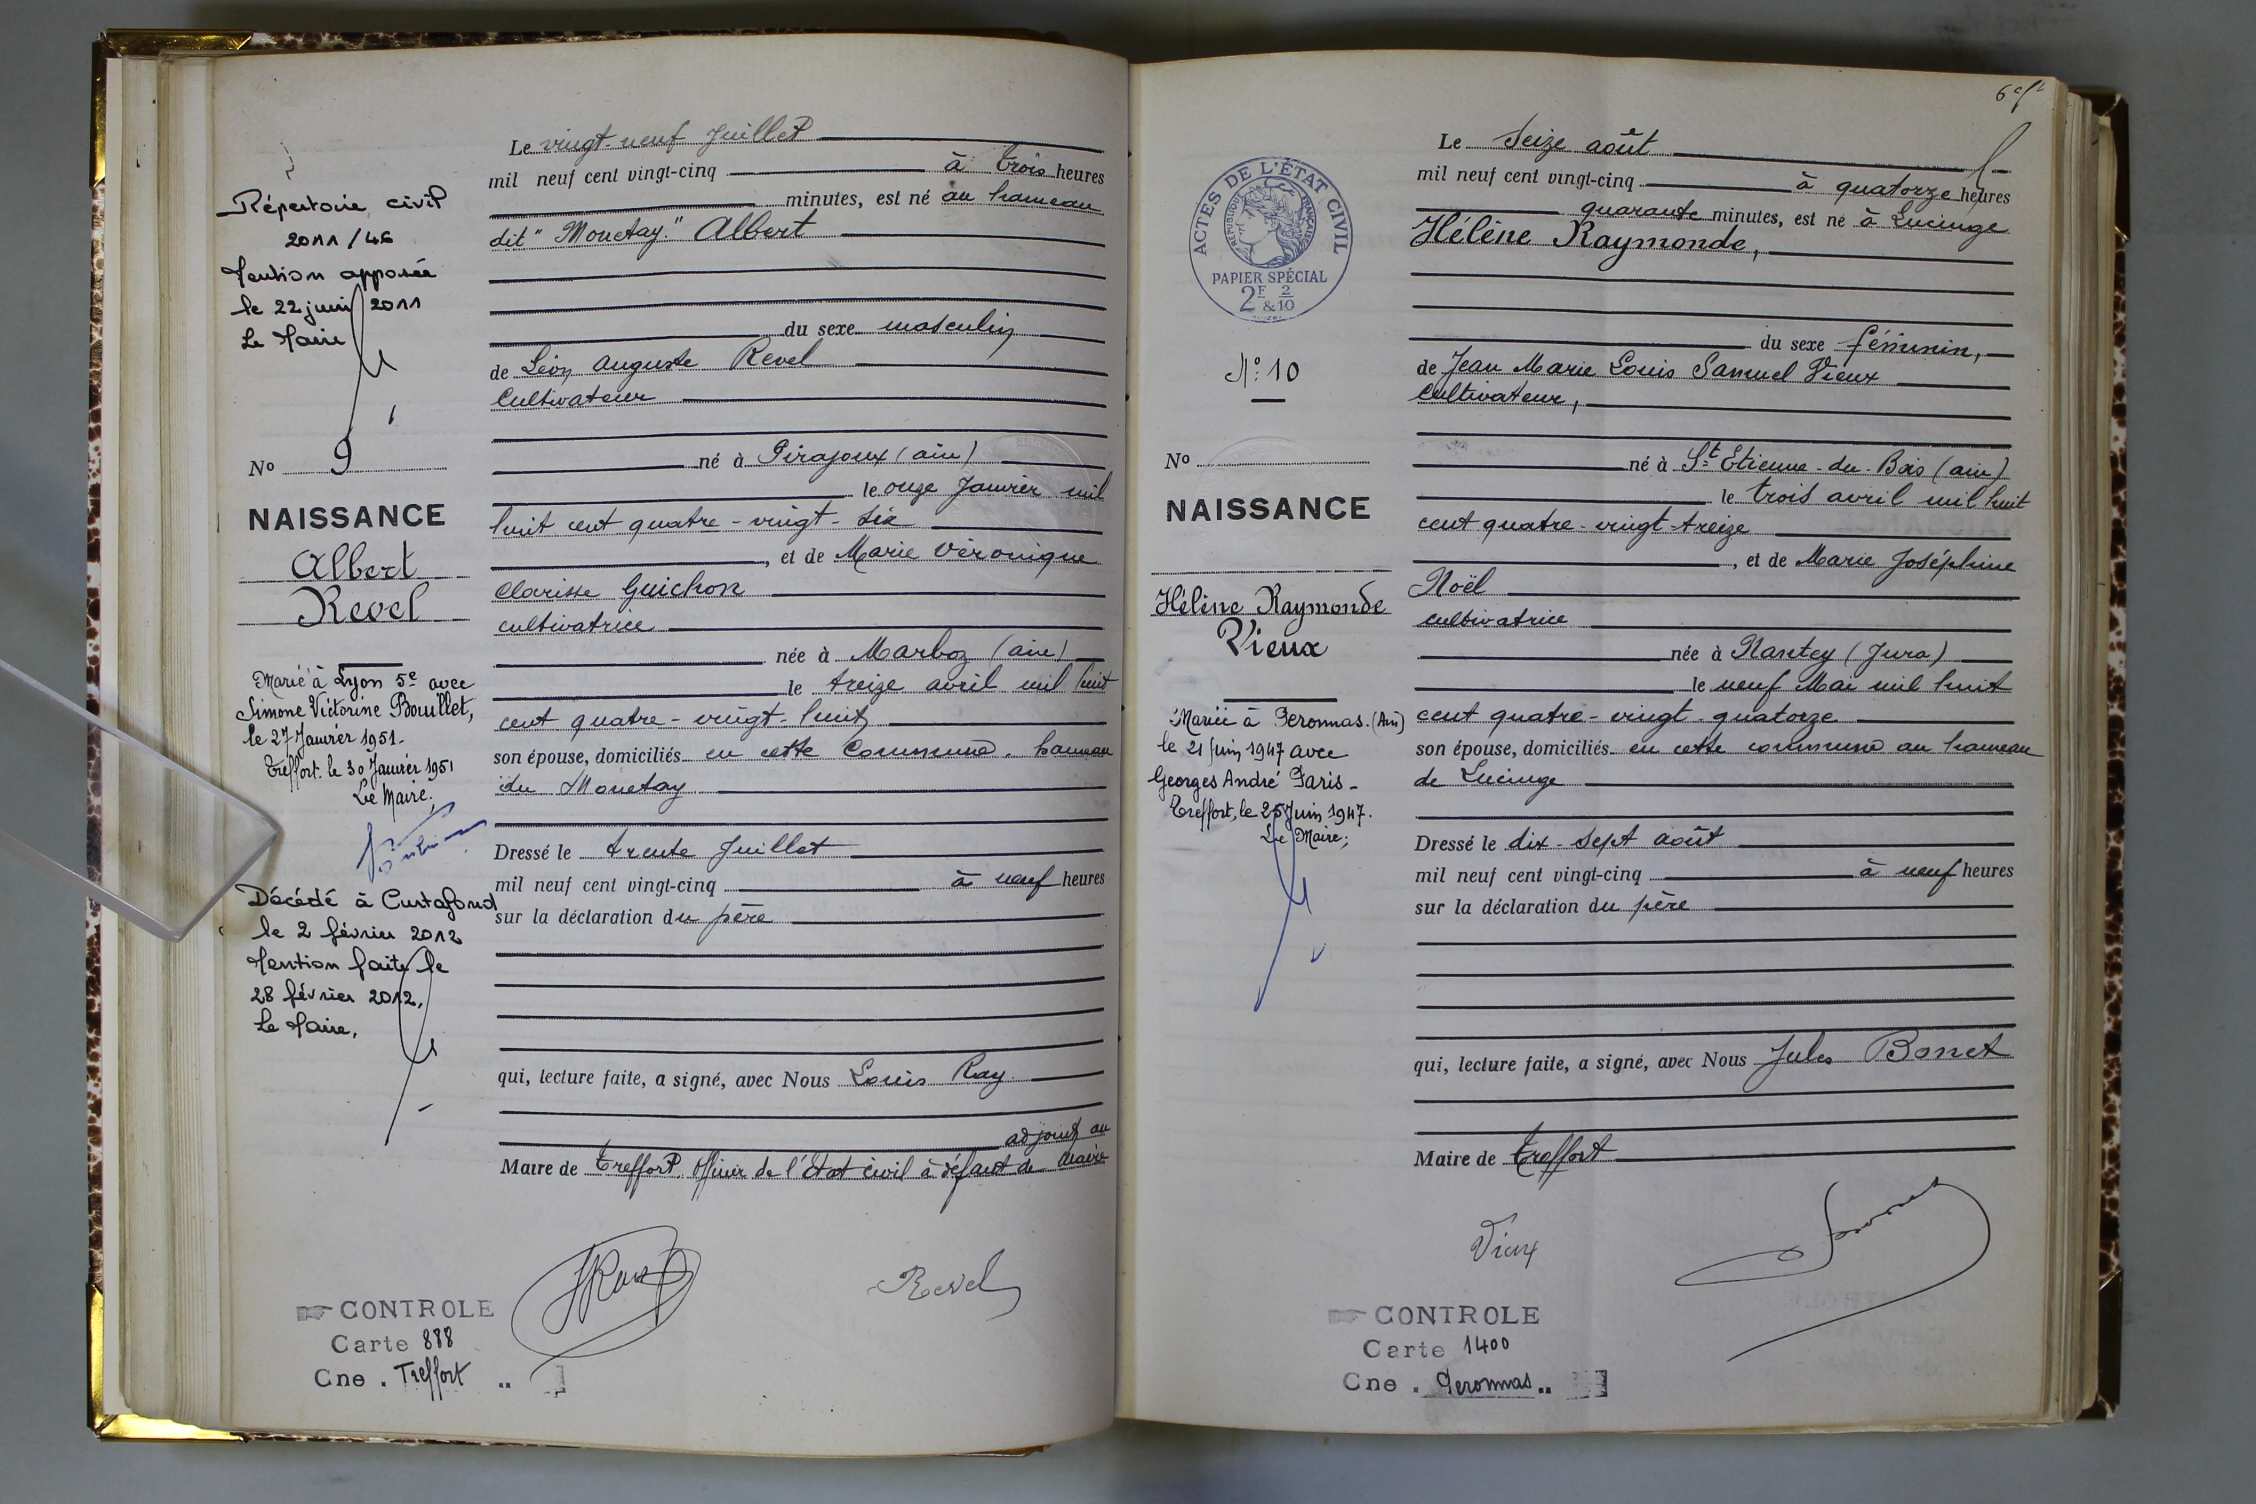 Répertoire civil
2011/46
Mention apposée
le 22 juin 2011
Le Maire
No 9
NAISSANCE
Albert
Revel
Marié à Lyon 5e avec
Simone Victorine Bouillet,
le 27 Janvier 1951.
Treffort le 30 Janvier 1951
Le Maire,
Décédé à Curtafond
le 2 février 2012
Mention faite le
28 février 2012,
Le Maire,
Le vingt-neuf Juillet
mil neuf cent vingt-cinq à trois heures
minutes, est né au hameau
dit "Monetay" Albert
du sexe masculin
de Léon Auguste Revel
Cultivateur
né à Pirajoux (ain)
le onze Janvier mil
huit cent quatre-vingt-six
, et de Marie Véronique
Clarisse Guichon
cultivatrice
née à Marboz (ain)
le treize avril mil huit
cent quatre-vingt-huit
son épouse, domiciliés en cette Commune. hameau
du Monetay
Dressé le trente Juillet
mil neuf cent vingt-cinq à neuf heures
sur la déclaration du père
qui, lecture faite, a signé, avec Nous Louis Ray
adjoint au
Maire de Treffort. Officier de l'Etat civil à défaut de Maire
Revel
CONTROLE
Carte 888
Cne . Treffort ..
Le Seize août
mil neuf cent vingt-cinq à quatorze heures
quarante minutes, est né à Lucinge
Hélène Raymonde,
du sexe féminin,
de Jean Marie Louis Samuel Vieux
Cultivateur,
né à St Etienne-du-Bois (ain)
le trois avril mil huit
cent quatre-vingt-treize
, et de Marie Joséphine
Noël
cultivatrice
née à Nantey (Jura)
le neuf Mai mil huit
cent quatre-vingt-quatorze
son épouse, domiciliés en cette commune au hameau
de Lucinge
Dressé le dix-sept août
mil neuf cent vingt-cinq à neuf heures
sur la déclaration du père
qui, lecture faite, a signé, avec Nous Jules Bonet
Maire de Treffort
Vieux
ACTES DE L'ÉTAT CIVIL
RÉPUBLIQUE FRANÇAISE
PAPIER SPÉCIAL
2F & 2/10
No 10
No
NAISSANCE
Hélène Raymonde
Vieux
Mariée à Peronnas. (Ain)
le 21 Juin 1947 avec
Georges André Paris-
Treffort, le 25 Juin 1947.
Le Maire;
CONTROLE
Carte 1400
Cne . Peronnas ..